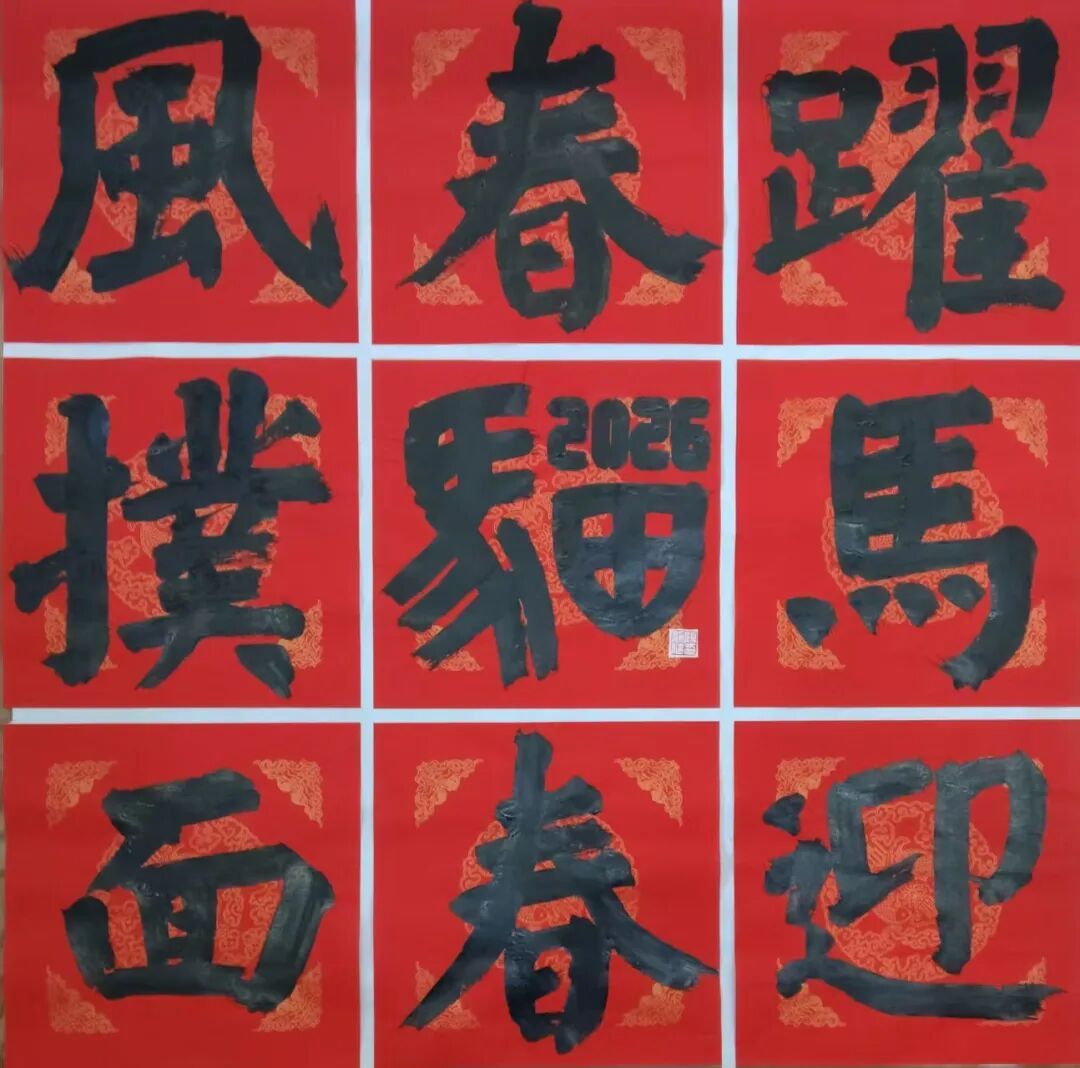 躍馬迎
春
2026
春
風撲面